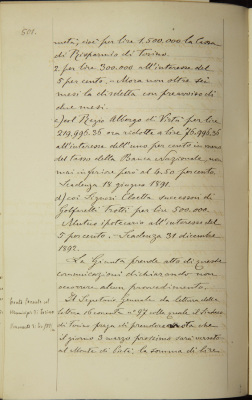 501.
nuta; cioè per lire 1.500.000 la Cassa
di Risparmio di Torino.
2. per lire 300.000 all'interesse del
5 per cento. - Mora non oltre sei
mesi la disdetta con preavviso di
due mesi.
c) col Regio Albergo di Virtù per lire
219,996.36 ora ridotte a lire 76,996.36
all'interesse dell'uno per cento in meno
del tasso della Banca Nazionale non
mai inferiore però al 4.50 per cento.
Scadenza 18 giugno 1891.
d) coi Signori successori di
per lire 500.000.
Mutuo ipotecario all'interesse del
5 per cento. - Scadenza 31 dicembre
1892.
La Giunta prende atto di queste
comunicazioni dichiarando non
occorrere alcun provvedimento.
Il Segretario generale dà lettura della
lettera N° 97 colla quale il Sindaco
di Torino prega di prendere nota che
il giorno 3 marzo prossimo sarà versato
al Monte di Pietà, la somma di lire
Municipio di Torino